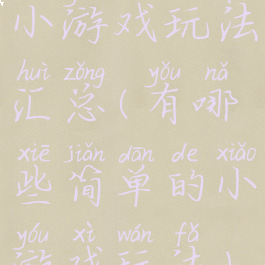 小游戏玩法
huì zǒng yǒu nǎ
汇总(有哪
xiē jiǎn dān de xiǎo
些简单的小
yóu xì wán fǎ
游戏玩法)